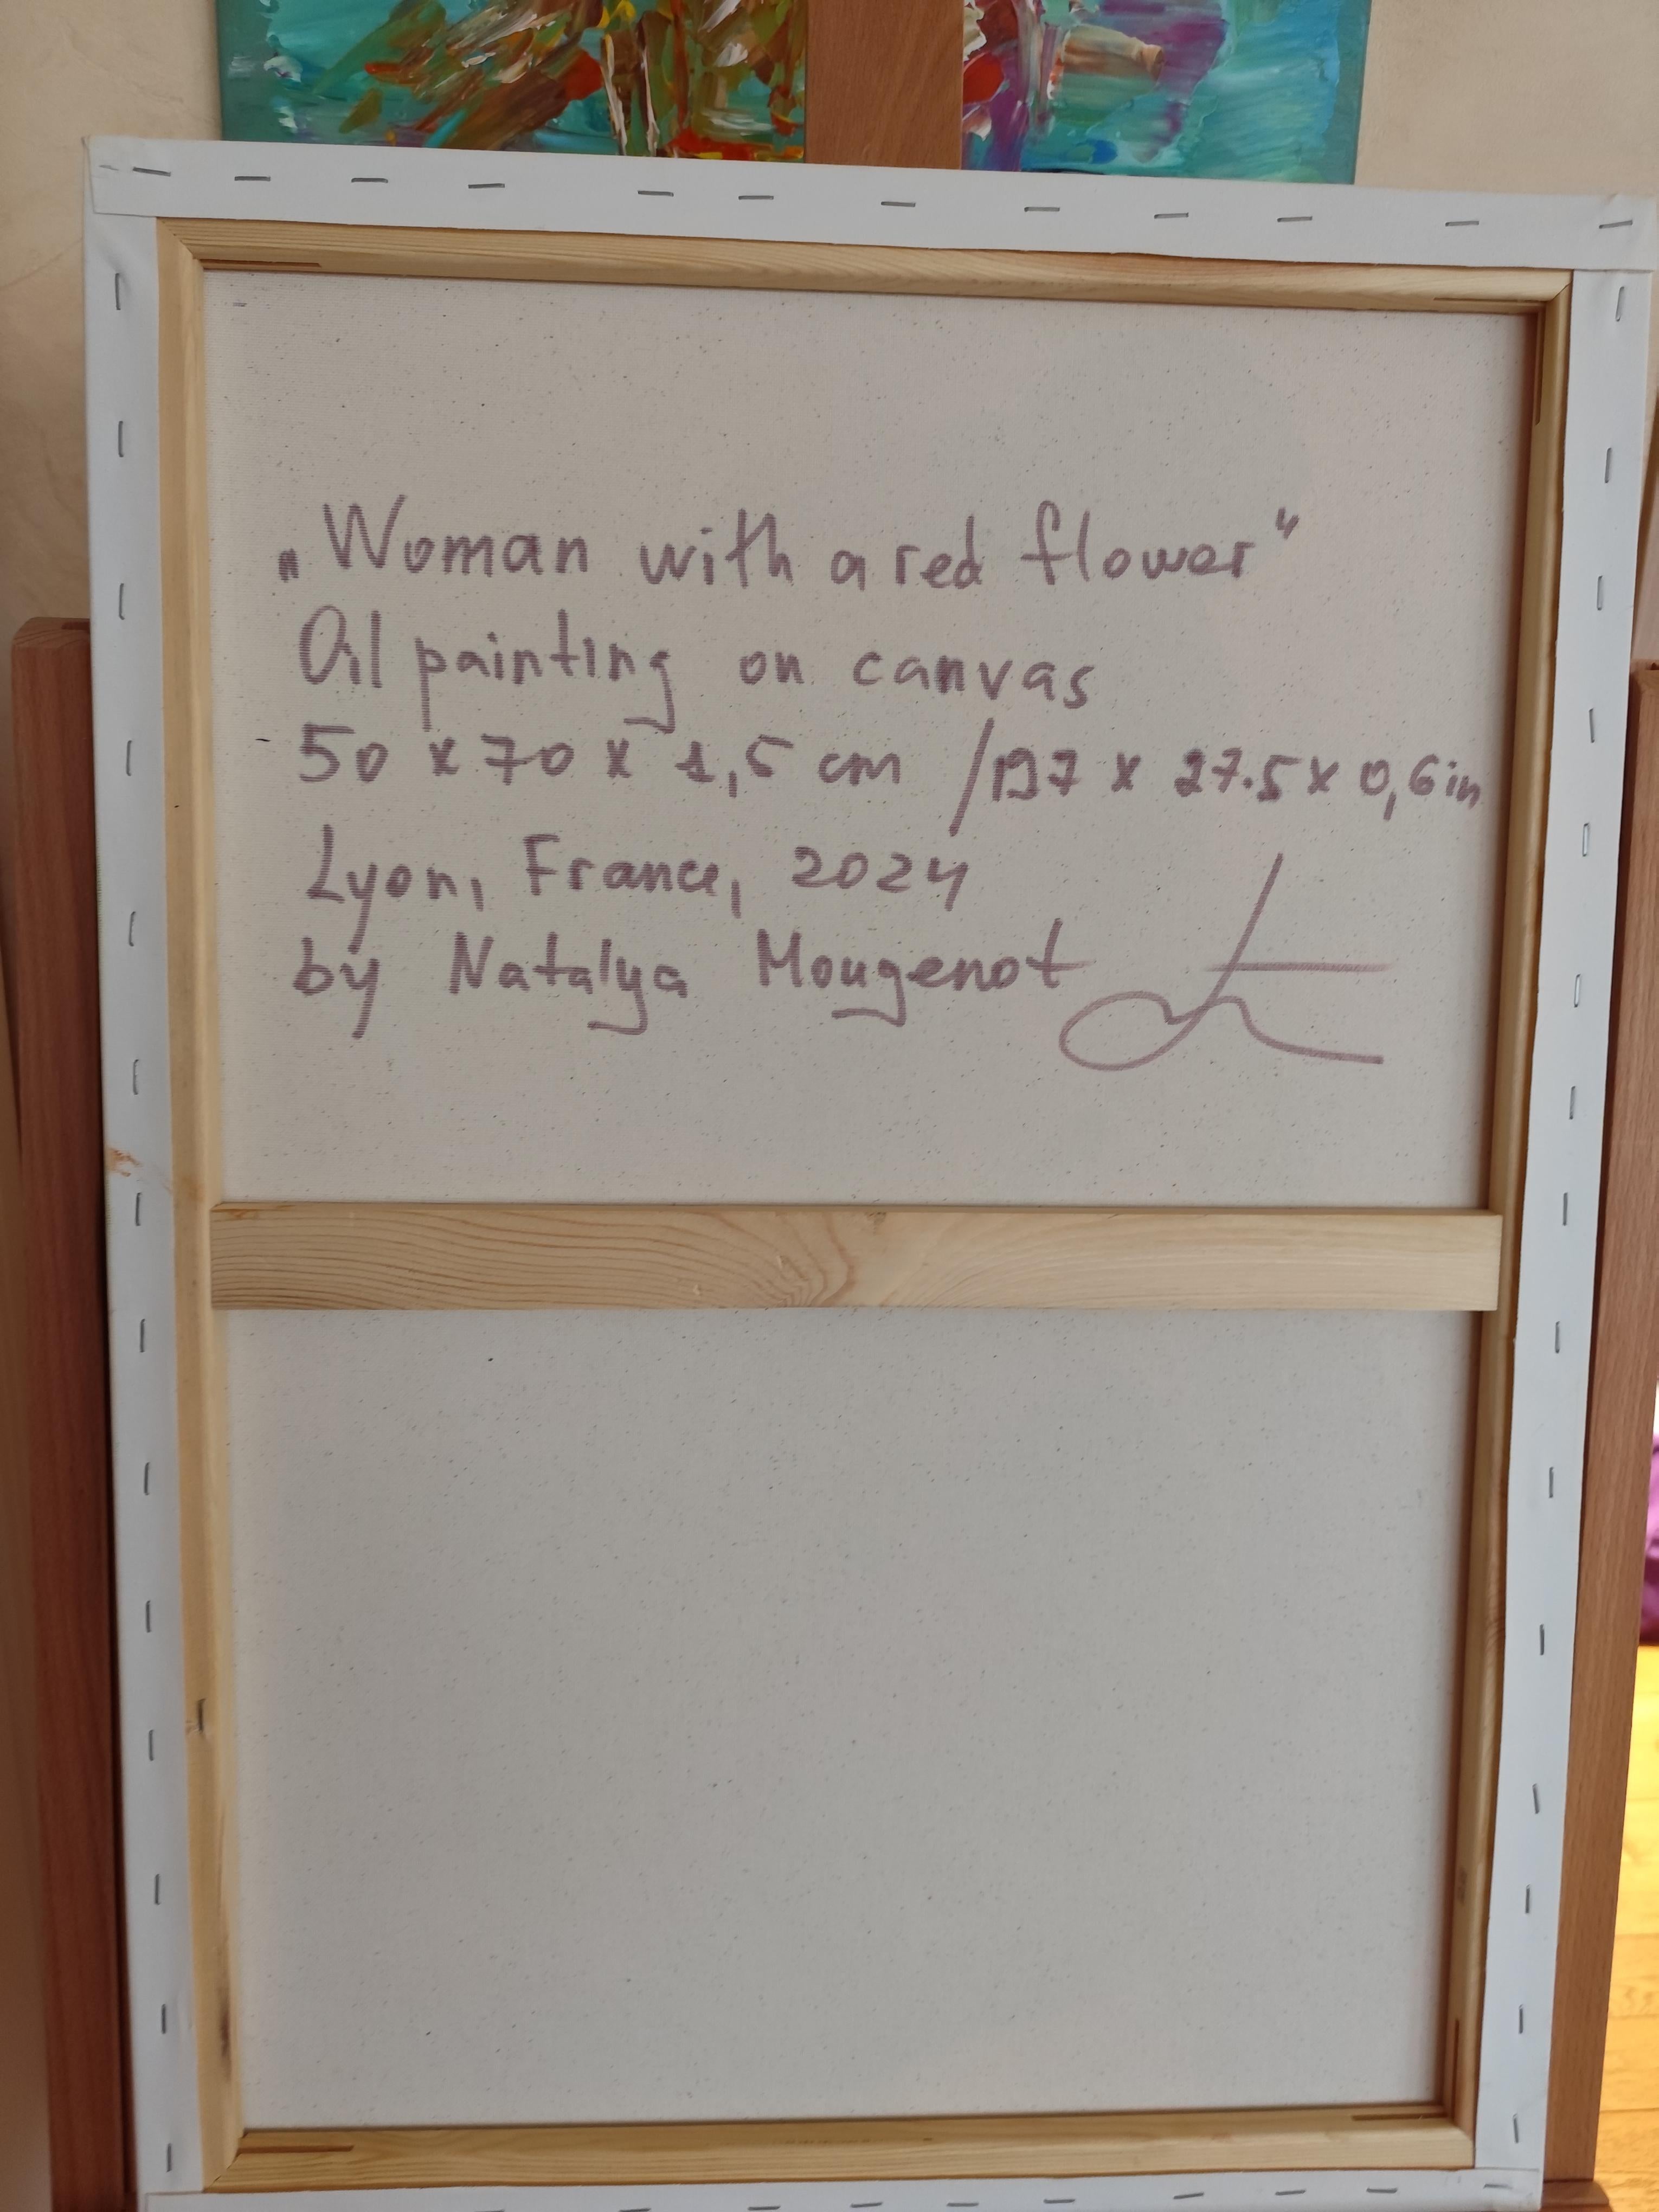 „Woman with a red flower“
Oil painting on canvas
50 x 70 x 1,5 cm / 19.7 x 27.5 x 0,6 in
Lyon, France, 2024
by Natalya Mougenot